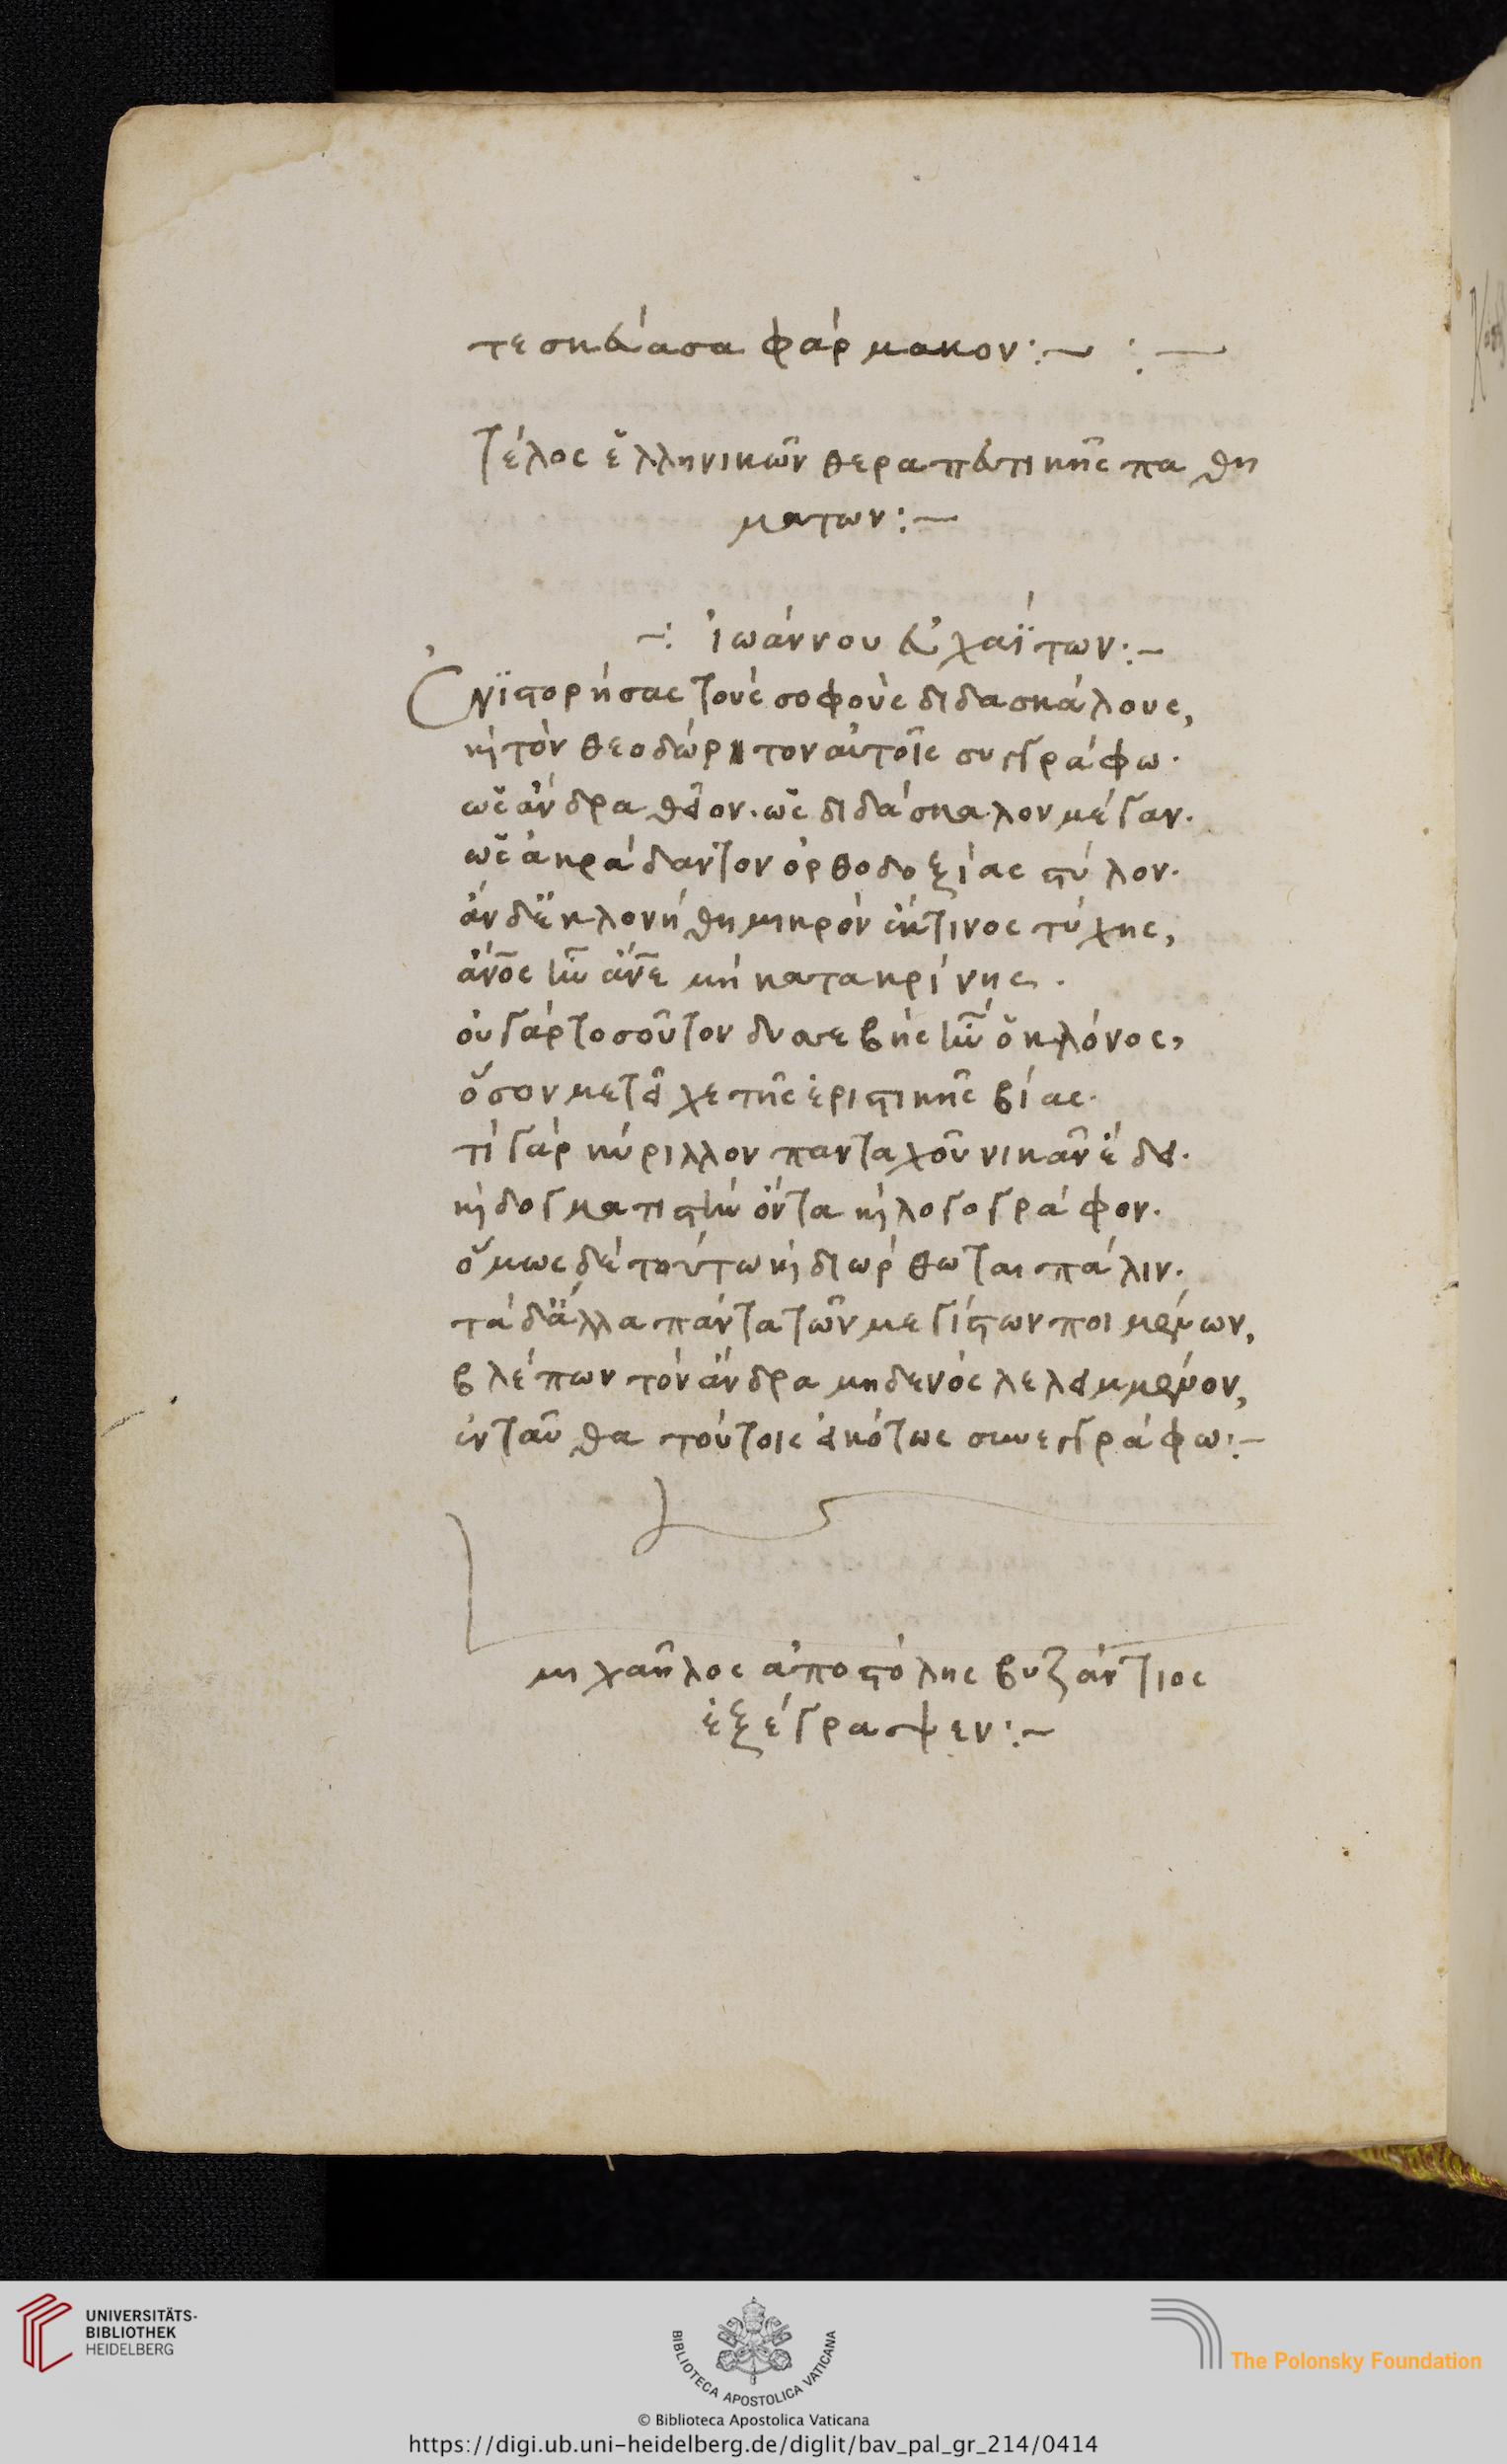 τε σκευάσα φάρμακον:~ :~
Τέλος ἑλληνικῶν θεραπευτικῆς παθη
μάτων:~
~: ἰωάννου εὐχαΐτων:~
Ἐνϊστορήσας τοὺς σοφοὺς διδασκάλους,
κὶ τὸν θεοδώρητον αὐτοῖς συγγράφω·
ὡς ἄνδρα θεῖον· ὡς διδάσκαλον μέγαν·
ὡς ἀκράδαντον ὀρθοδοξίας στύλον·
ἂν δ' ἐκλονήθη μικρὸν ἔκ τινος τύχης,
ἄν̅ος ἦν ἄν̅ε μὴ κατακρίνης·
οὐ γὰρ τοσοῦτον δυσεβὴς ἦν ὁ κλόνος,
ὅσον μετεῖχε τῆς ἐριστικῆς βίας·
τί γὰρ κύριλλον πανταχοῦ νικᾶν ἔδει·
κὶ δογματιστὴν ὄντα κὶ λογογράφον·
ὅμως δὲ τούτω κὶ διώρθωται πάλιν·
τὰ δ' ἄλλα πάντα τῶν μεγίστων ποιμένων,
βλέπων τὸν ἄνδρα μηδενὸς λελειμμένον,
ἐνταῦθα τούτοις εἰκότως συνεγγράφω:~
μιχαῆλος ἀποστόλης βυζάντιος
ἐξέγραψεν:~
UNIVERSITÄTS-
BIBLIOTHEK
HEIDELBERG
BIBLIOTECA APOSTOLICA VATICANA
The Polonsky Foundation
© Biblioteca Apostolica Vaticana
https://digi.ub.uni-heidelberg.de/diglit/bav_pal_gr_214/0414